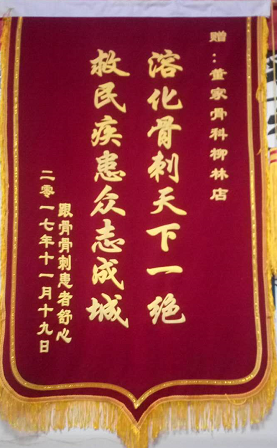 赠：董家骨科柳林店
溶化骨刺天下一绝
救民疾患众志成城
跟骨骨刺患者舒心
二零一七年十一月十九日